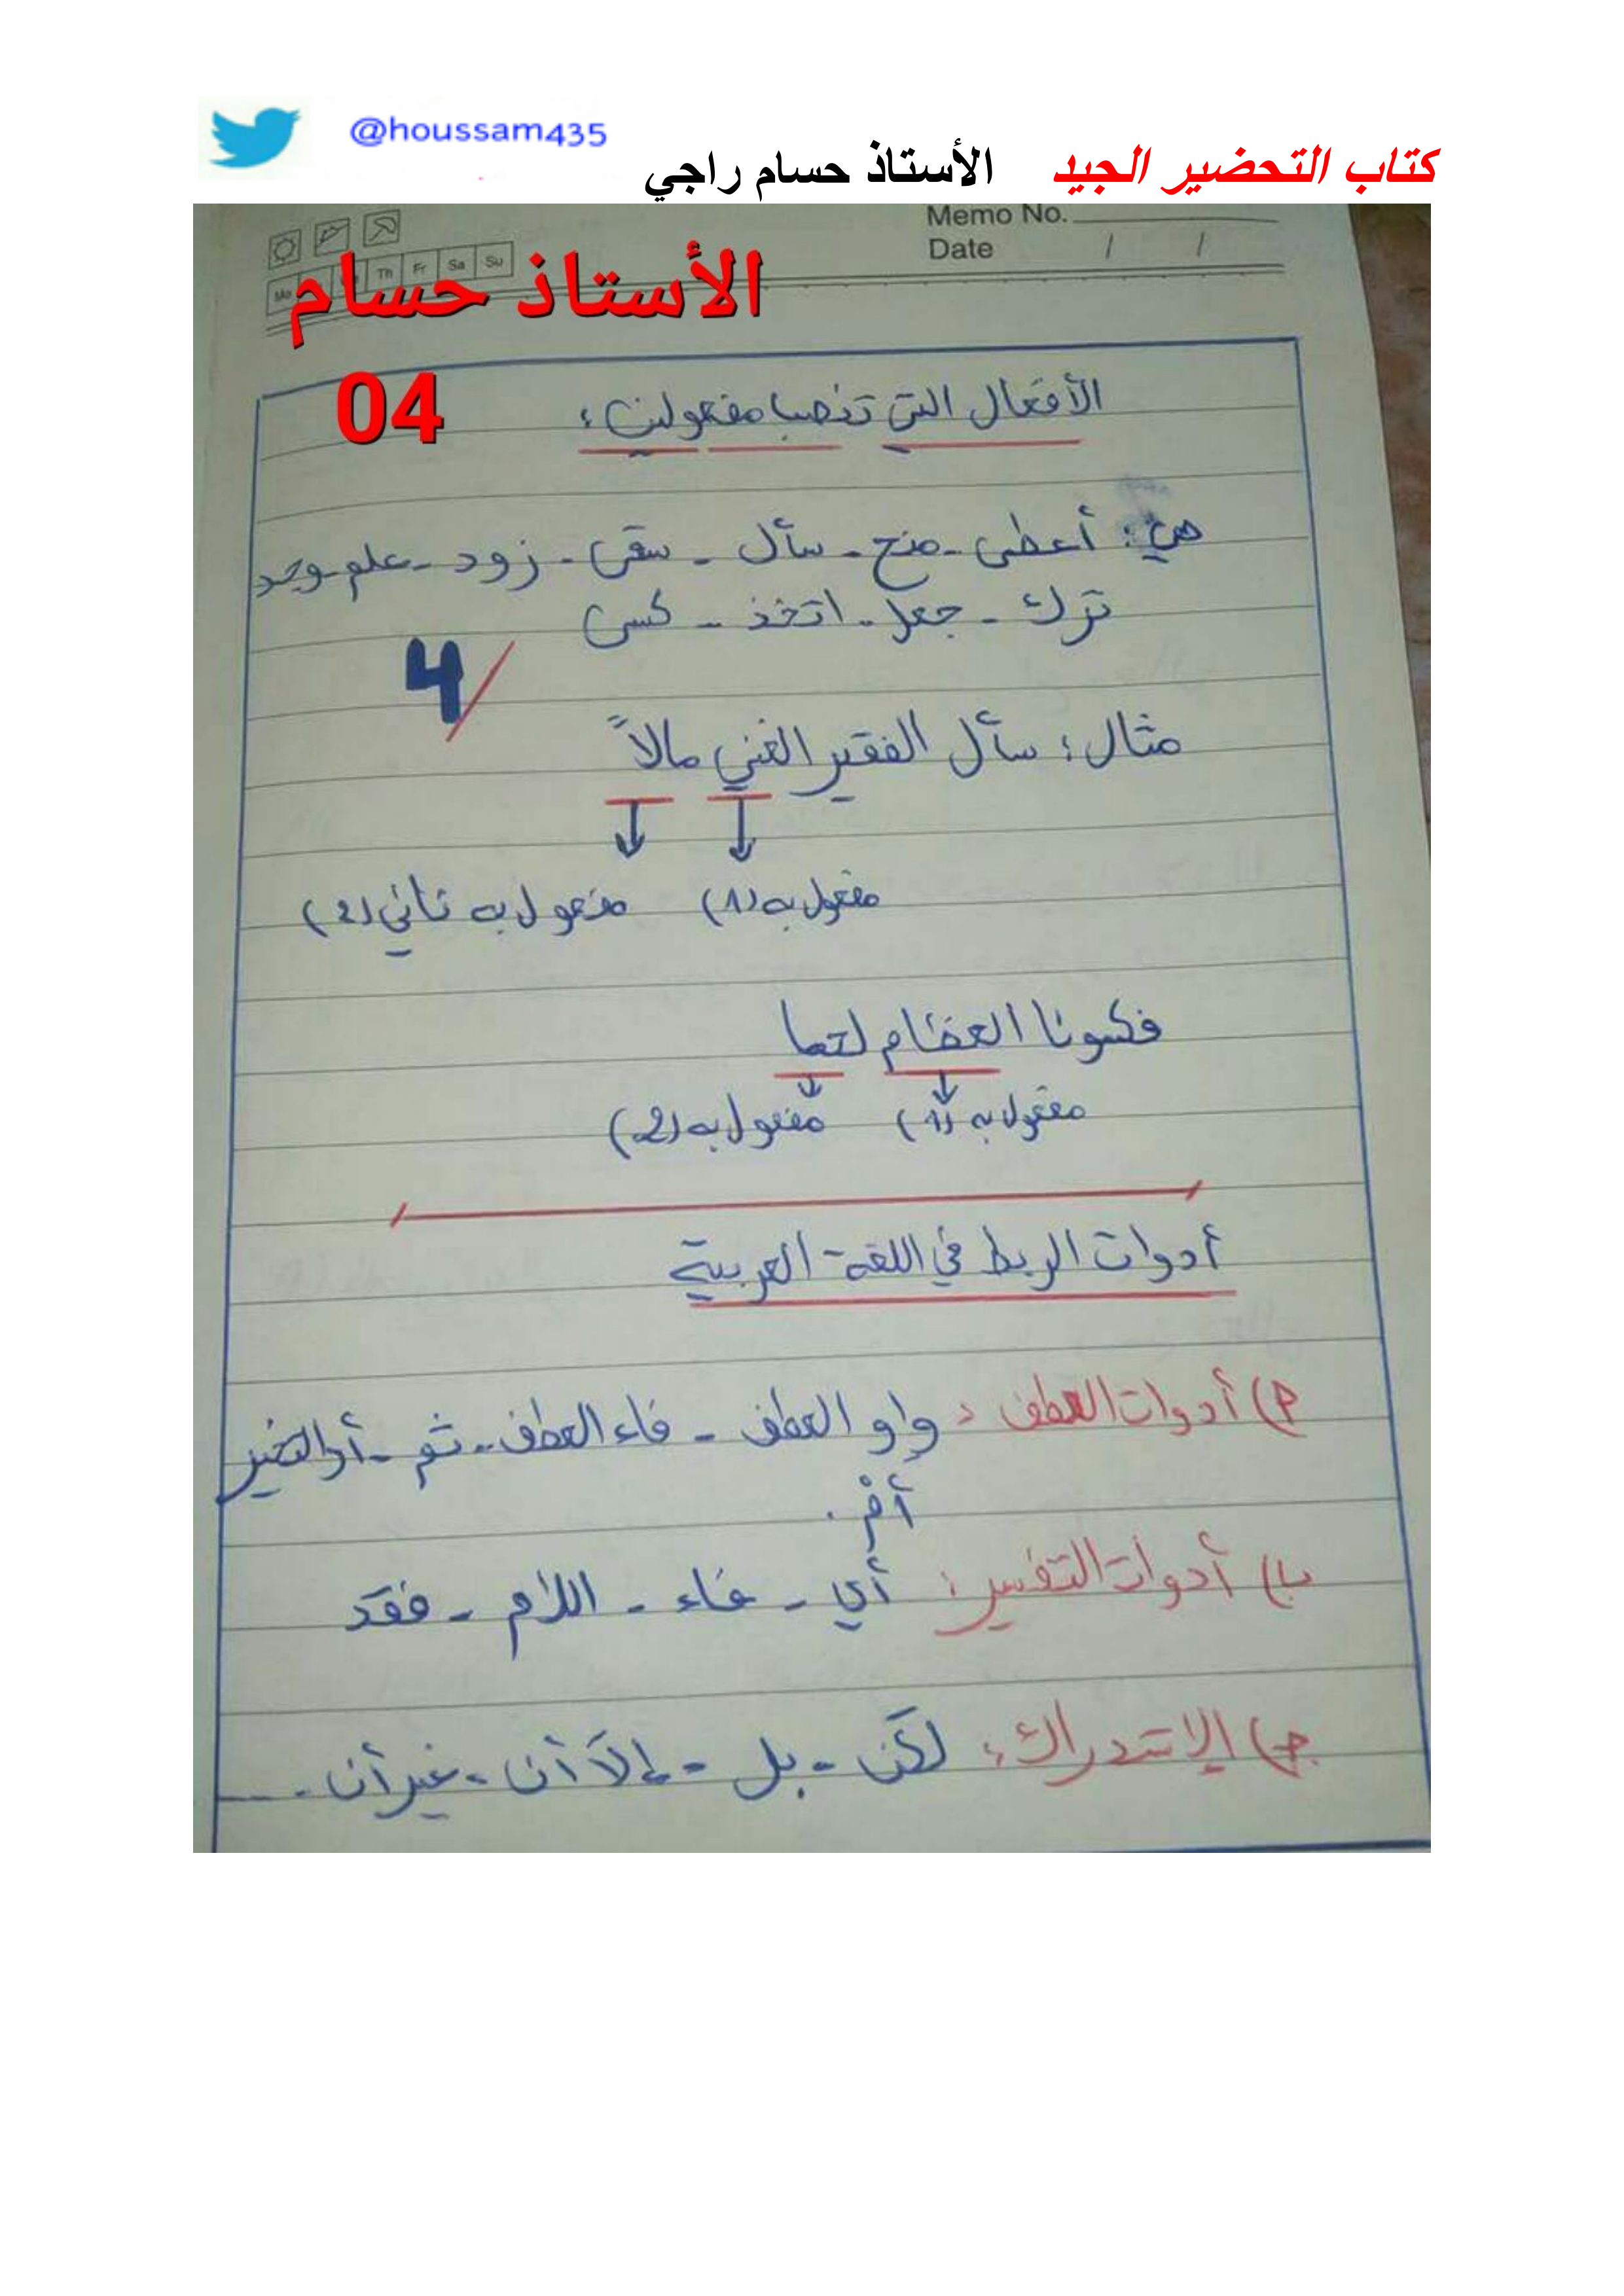 @houssam435
كتاب التحضير الجيد الأستاذ حسام راجي
Memo No.
Date / /
Th Fr Sa Su
الأستاذ حسام
04
الأفعال التي تنصب مفعولين:
هي: أعطى - منح - سأل - سقى - زود - علم - وجد
ترك - جعل - اتخذ - كسى
4/
مثال: سأل الفقير الغني مالاً
مفعول به (1) مفعول به ثاني (2)
فكسونا العظام لحما
مفعول به (1) مفعول به (2)
أدوات الربط في اللغة العربية
أ) أدوات العطف: واو العطف - فاء العطف - ثم - أو التخير
أمْ.
ب) أدوات التفسير: أي - فاء - اللام - فقد
ج) الإستدراك: لكن - بل - إلاّ أن - غير أن - ...